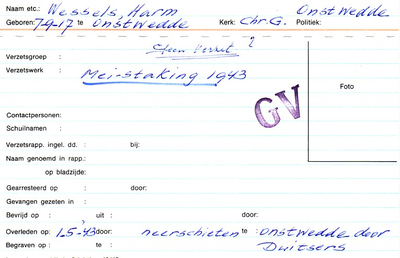 Naam etc.: Wessels, Harm Onstwedde
Geboren: 7-9-17 te Onstwedde Kerk: Chr.G. Politiek:
Geen verzet ?
Verzetsgroep :
Verzetswerk : Mei-staking 1943
Foto
GV
Contactpersonen:
Schuilnamen :
Verzetsrapp. ingel. dd. : bij:
Naam genoemd in rapp.:
op bladzijde:
Gearresteerd op : door:
Gevangen gezeten in :
Bevrijd op : uit : door:
Overleden op : 1-5-'43 door: neerschieten te : Onstwedde door
Begraven op : te : Duitsers